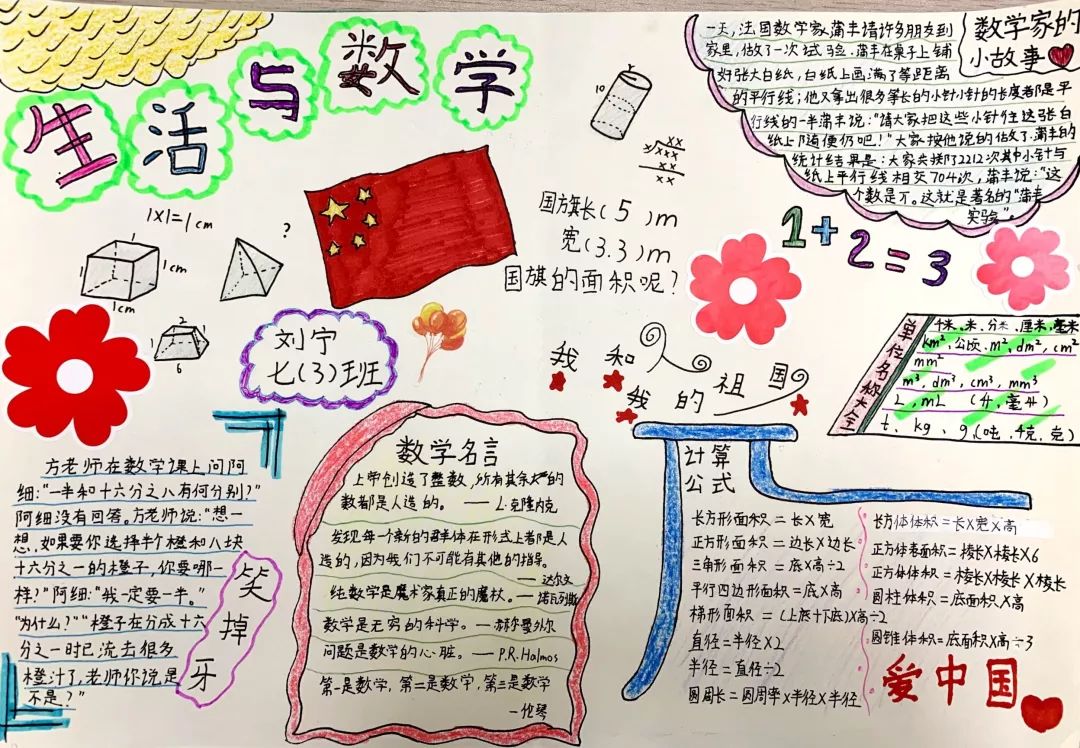 生活与数学
数学家的
小故事
一天,法国数学家蒲丰请许多朋友到
家里,做了一次试验.蒲丰在桌子上铺
好张大白纸,白纸上画满了等距离
的平行线;他又拿出很多等长的小针小针的长度都是平
行线的一半蒲丰说:“请大家把这些小针往这张白
纸上随便仍吧!”大家按他说的做了.蒲丰的
统计结果是:大家共掷了2212次其中小针与
纸上平行线相交704次,蒲丰说:“这
个数是π。这就是著名的“蒲丰
实验”。
10
国方旗长(5)m
宽(3.3)m
国旗的面积呢?
1+2=3
1x1=1cm
1
1
1cm
1cm
?
2
1
6
刘宁
七(3)班
我和
我的祖国
单位名称大全
千米、米、分米、厘米,毫米
km²,公顷、m²,dm²,cm²
mm²
m³,dm³,cm³,mm³
L,mL (升,毫升)
t、kg、g,(吨,千克,克)
方老师在数学课上问阿
细:“一半和十六分之八有何分别?”
阿细没有回答。方老师说:“想一
想,如果要你选择半个橙和八块
十六分之一的橙子,你要哪一
样?”阿细:“我一定要一半。”
“为什么?”“橙子在分成十六
分之一时已流去很多
橙汁了,老师你说是
不是?”
笑掉牙
数学名言
上帝创造了整数,所有其余的
数都是人造的。——L·克隆内克
发现每个新的群体在形式上都是人
造的,因为我们不可能有其他的指导。
——达尔文
纯数学是魔术家真正的魔杖。——诺瓦列斯
数学是无穷的科学。——赫尔曼外尔
问题是数学的心脏。——P.R.Halmos
第一是数学,第二是数学,第三是数学
—伦琴
计算
公式
长方形面积=长X宽
正方形面积=边长X边长
三角形面积=底X高÷2
平行四边形面积=底X高
梯形面积=(上底+下底)X高÷2
直径=半径X2
半径=直径÷2
圆周长=圆周率X半径X半径
长方体体积=长X宽X高
正方体表面积=棱长X棱长X6
正方体体积=棱长X棱长X棱长
圆柱体积=底面积X高
圆锥体积=底面积X高÷3
爱中国